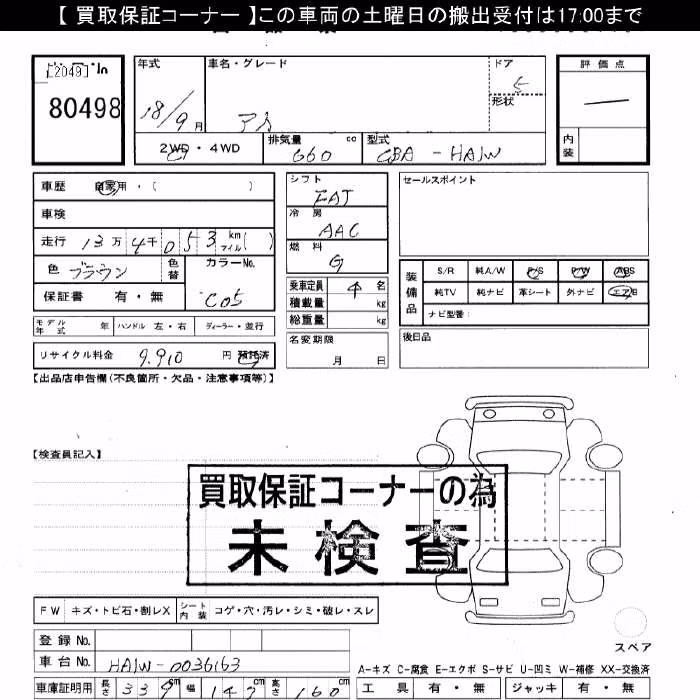 【 買取保証コーナー 】この車両の土曜日の搬出受付は17:00まで
80498
年式
18/9 月
車名・グレード
アイ
ドア
5
形状
評価点
内装
2WD・4WD
排気量
660 cc
型式
CBA - HA1W
車歴 自家用・( )
車検
走行 13万 4千 053 km マイル ( )
色 ブラウン 色替 カラーNo.
保証書 有・無 C05
モデル年式 年 ハンドル 左・右 ディーラー・並行
リサイクル料金 9,910 円 預託済
シフト
FAT
冷房
AAC
燃料
G
乗車定員 4 名
積載量 kg
総重量 kg
名変期限
月 日
セールスポイント
装備品
S/R 純A/W P/S P/W ABS
純TV 純ナビ 革シート 外ナビ エアB
ナビ型番:
後日品
【出品店申告欄(不良箇所・欠品・注意事項等)】
【検査員記入】
買取保証コーナーの為
未検査
FW キズ・トビ石・割レX シート内装 コゲ・穴・汚レ・シミ・破レ・スレ
スペア
登録No.
車台No. HA1W-0036163
A-キズ C-腐食 E-エクボ S-サビ U-凹ミ W-補修 XX-交換済
車庫証明用 長さ 339 cm 幅 147 cm 高さ 160 cm
工具 有・無 ジャッキ 有・無